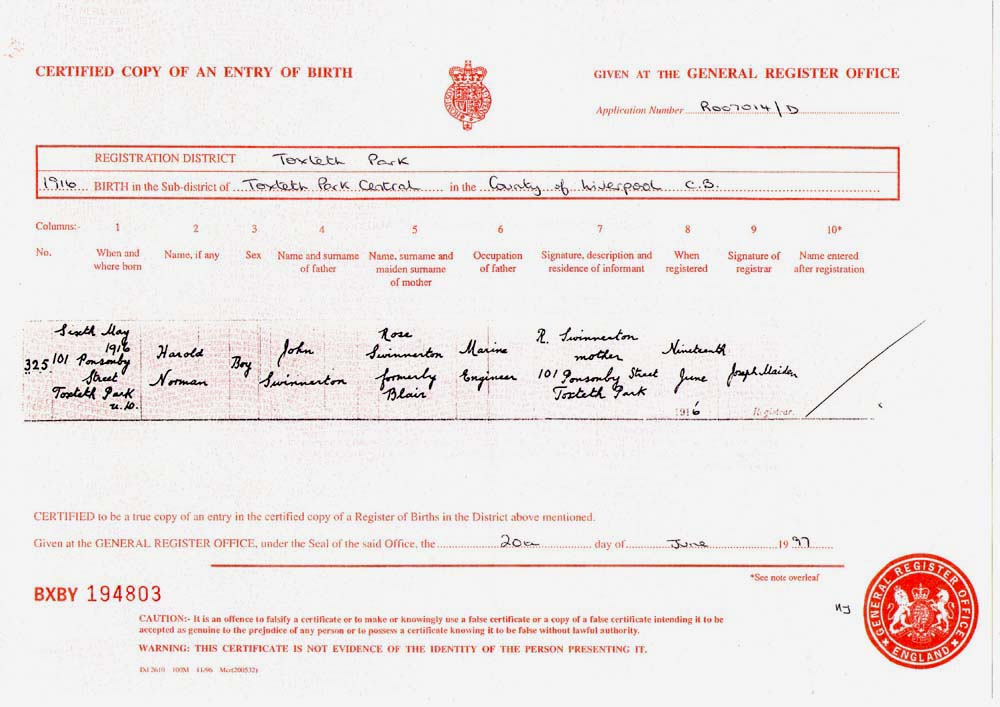 CERTIFIED COPY OF AN ENTRY OF BIRTH
GIVEN AT THE GENERAL REGISTER OFFICE
Application Number R007014/D
REGISTRATION DISTRICT Toxteth Park
1916 BIRTH in the Sub-district of Toxteth Park Central in the County of Liverpool C.B.
Columns:- 1 2 3 4 5 6 7 8 9 10*
No. When and where born Name, if any Sex Name and surname of father Name, surname and maiden surname of mother Occupation of father Signature, description and residence of informant When registered Signature of registrar Name entered after registration
325 Sixth May 1916 101 Ponsonby Street Toxteth Park u.D. Harold Norman Boy John Swinnerton Rose Swinnerton formerly Blair Marine Engineer R. Swinnerton mother 101 Ponsonby Street Toxteth Park Nineteenth June 1916 Joseph Maiden Registrar.
CERTIFIED to be a true copy of an entry in the certified copy of a Register of Births in the District above mentioned.
Given at the GENERAL REGISTER OFFICE, under the Seal of the said Office, the 20th day of June 1997
*See note overleaf
BXBY 194803
CAUTION:- It is an offence to falsify a certificate or to make or knowingly use a false certificate or a copy of a false certificate intending it to be
accepted as genuine to the prejudice of any person or to possess a certificate knowing it to be false without lawful authority.
WARNING: THIS CERTIFICATE IS NOT EVIDENCE OF THE IDENTITY OF THE PERSON PRESENTING IT.
GENERAL REGISTER OFFICE
ENGLAND